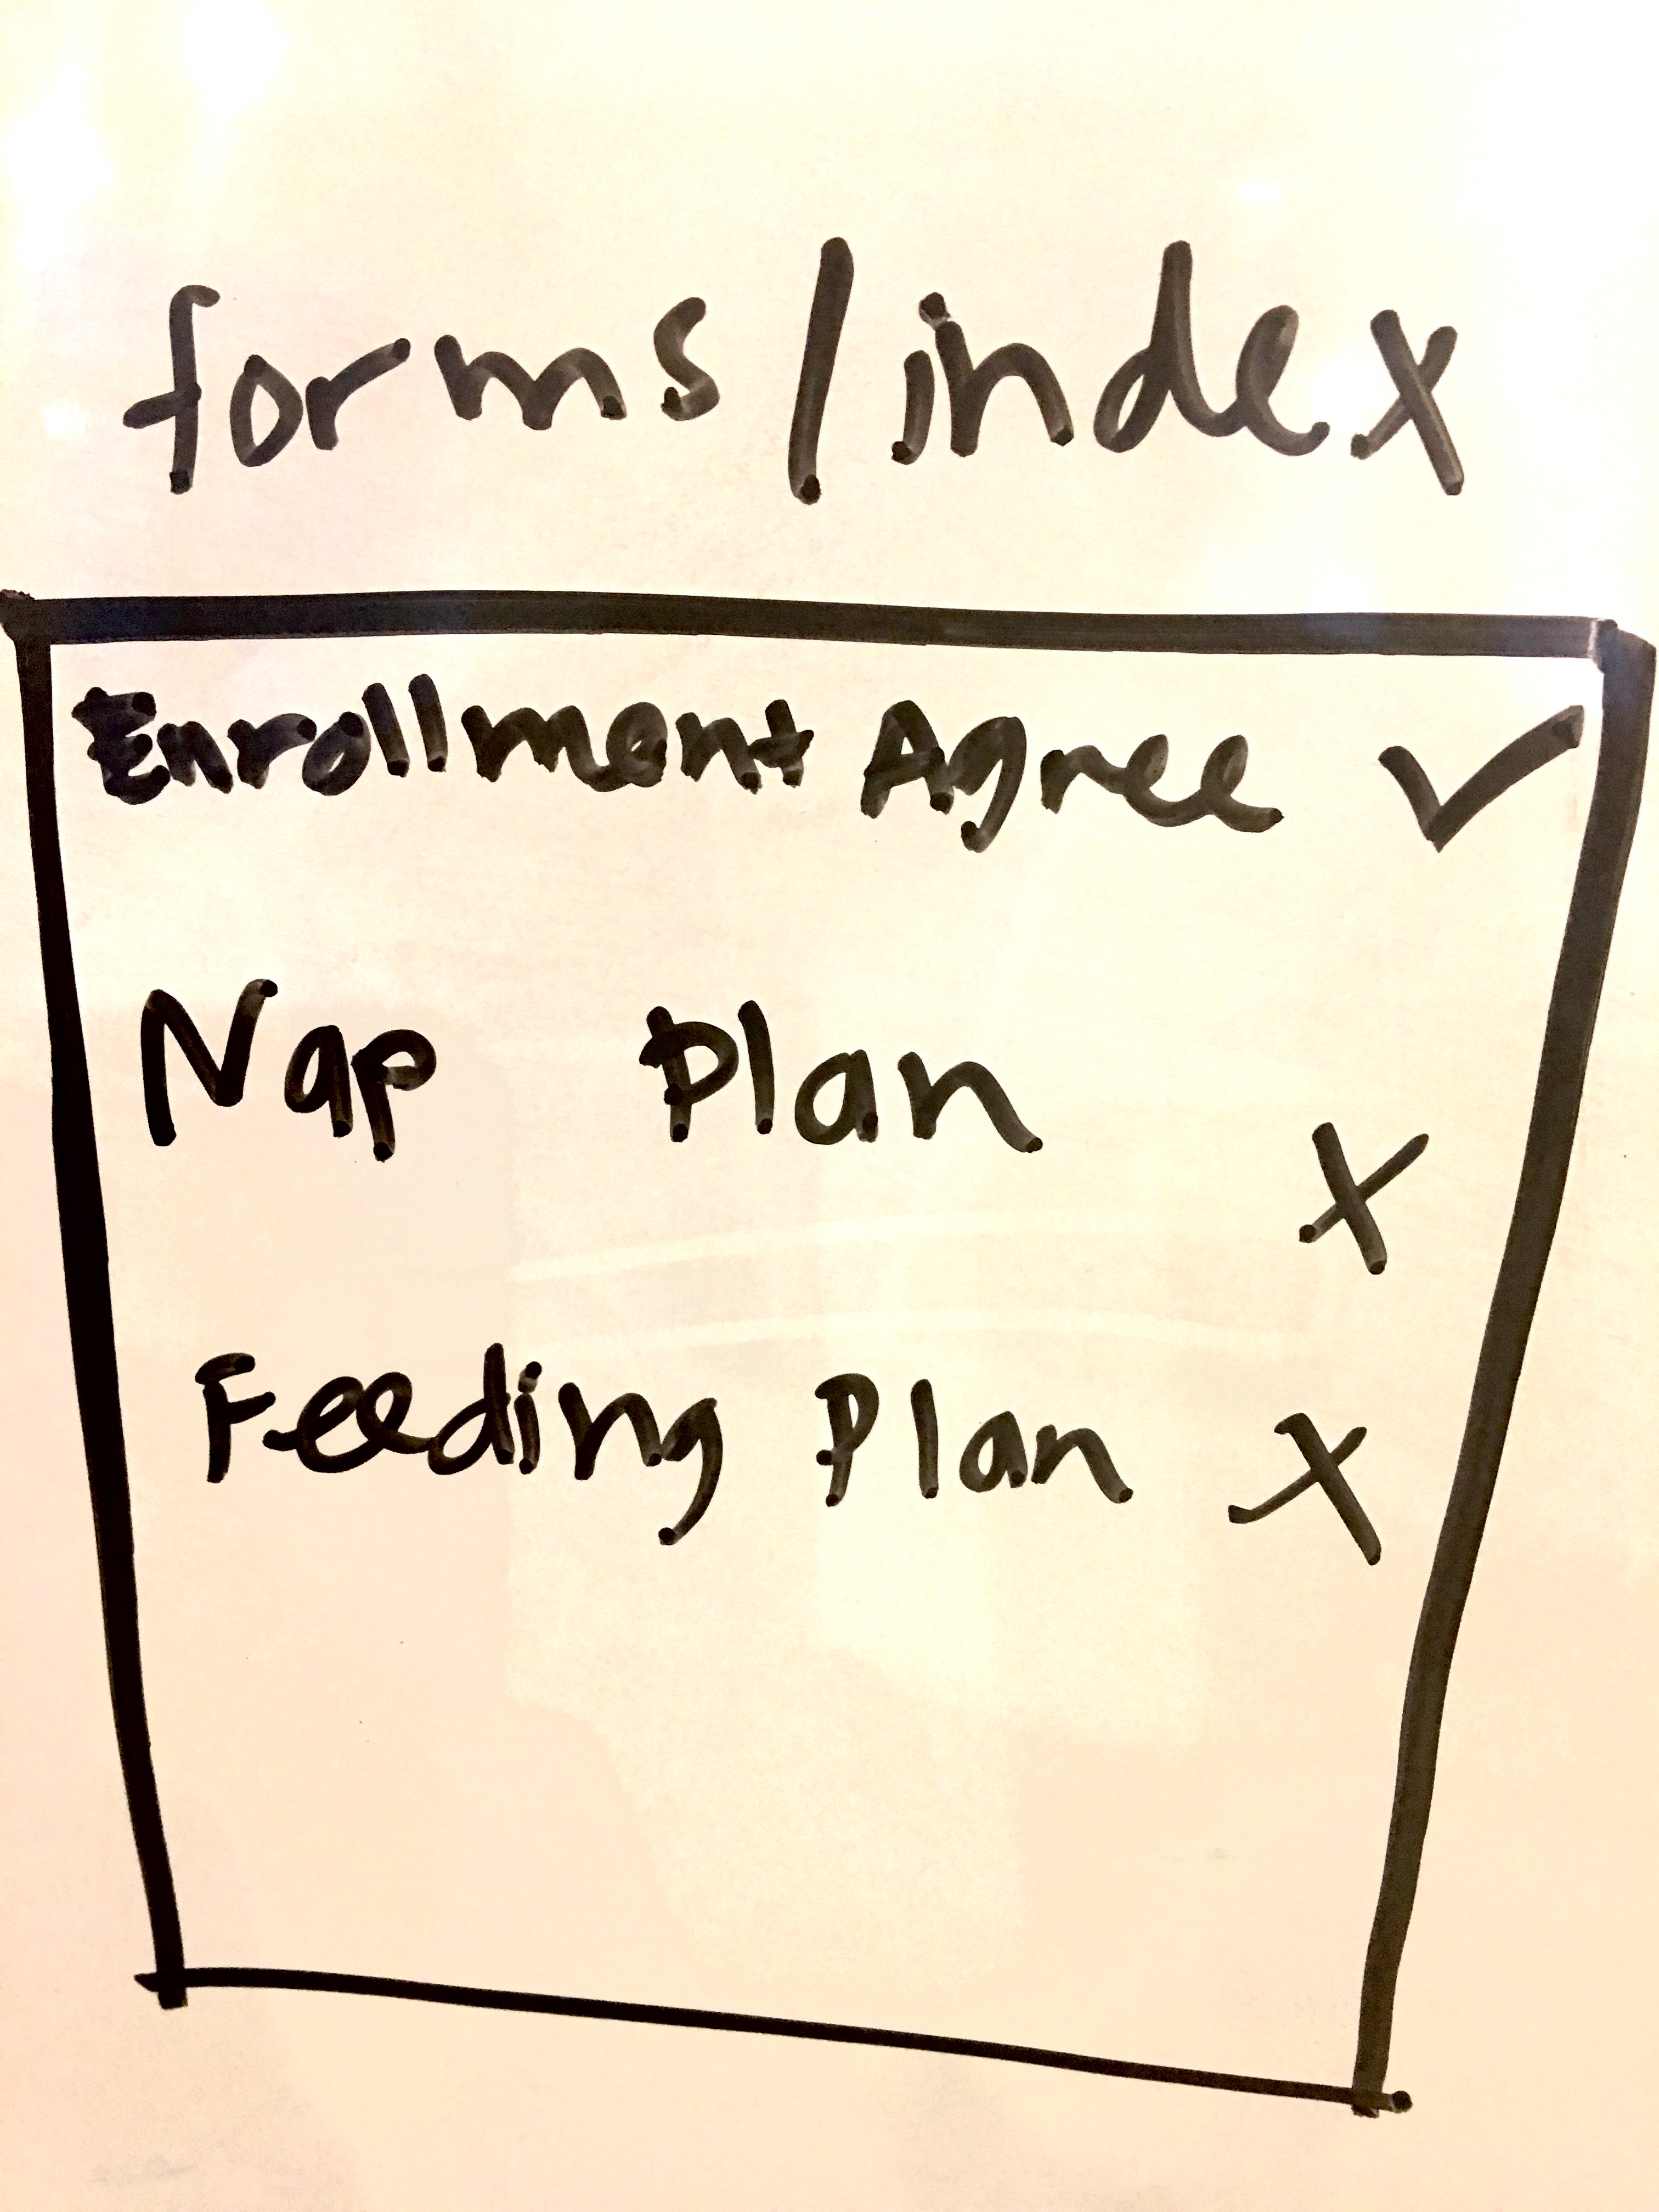 forms/index
Enrollment Agree ✓
Nap Plan X
Feeding Plan X